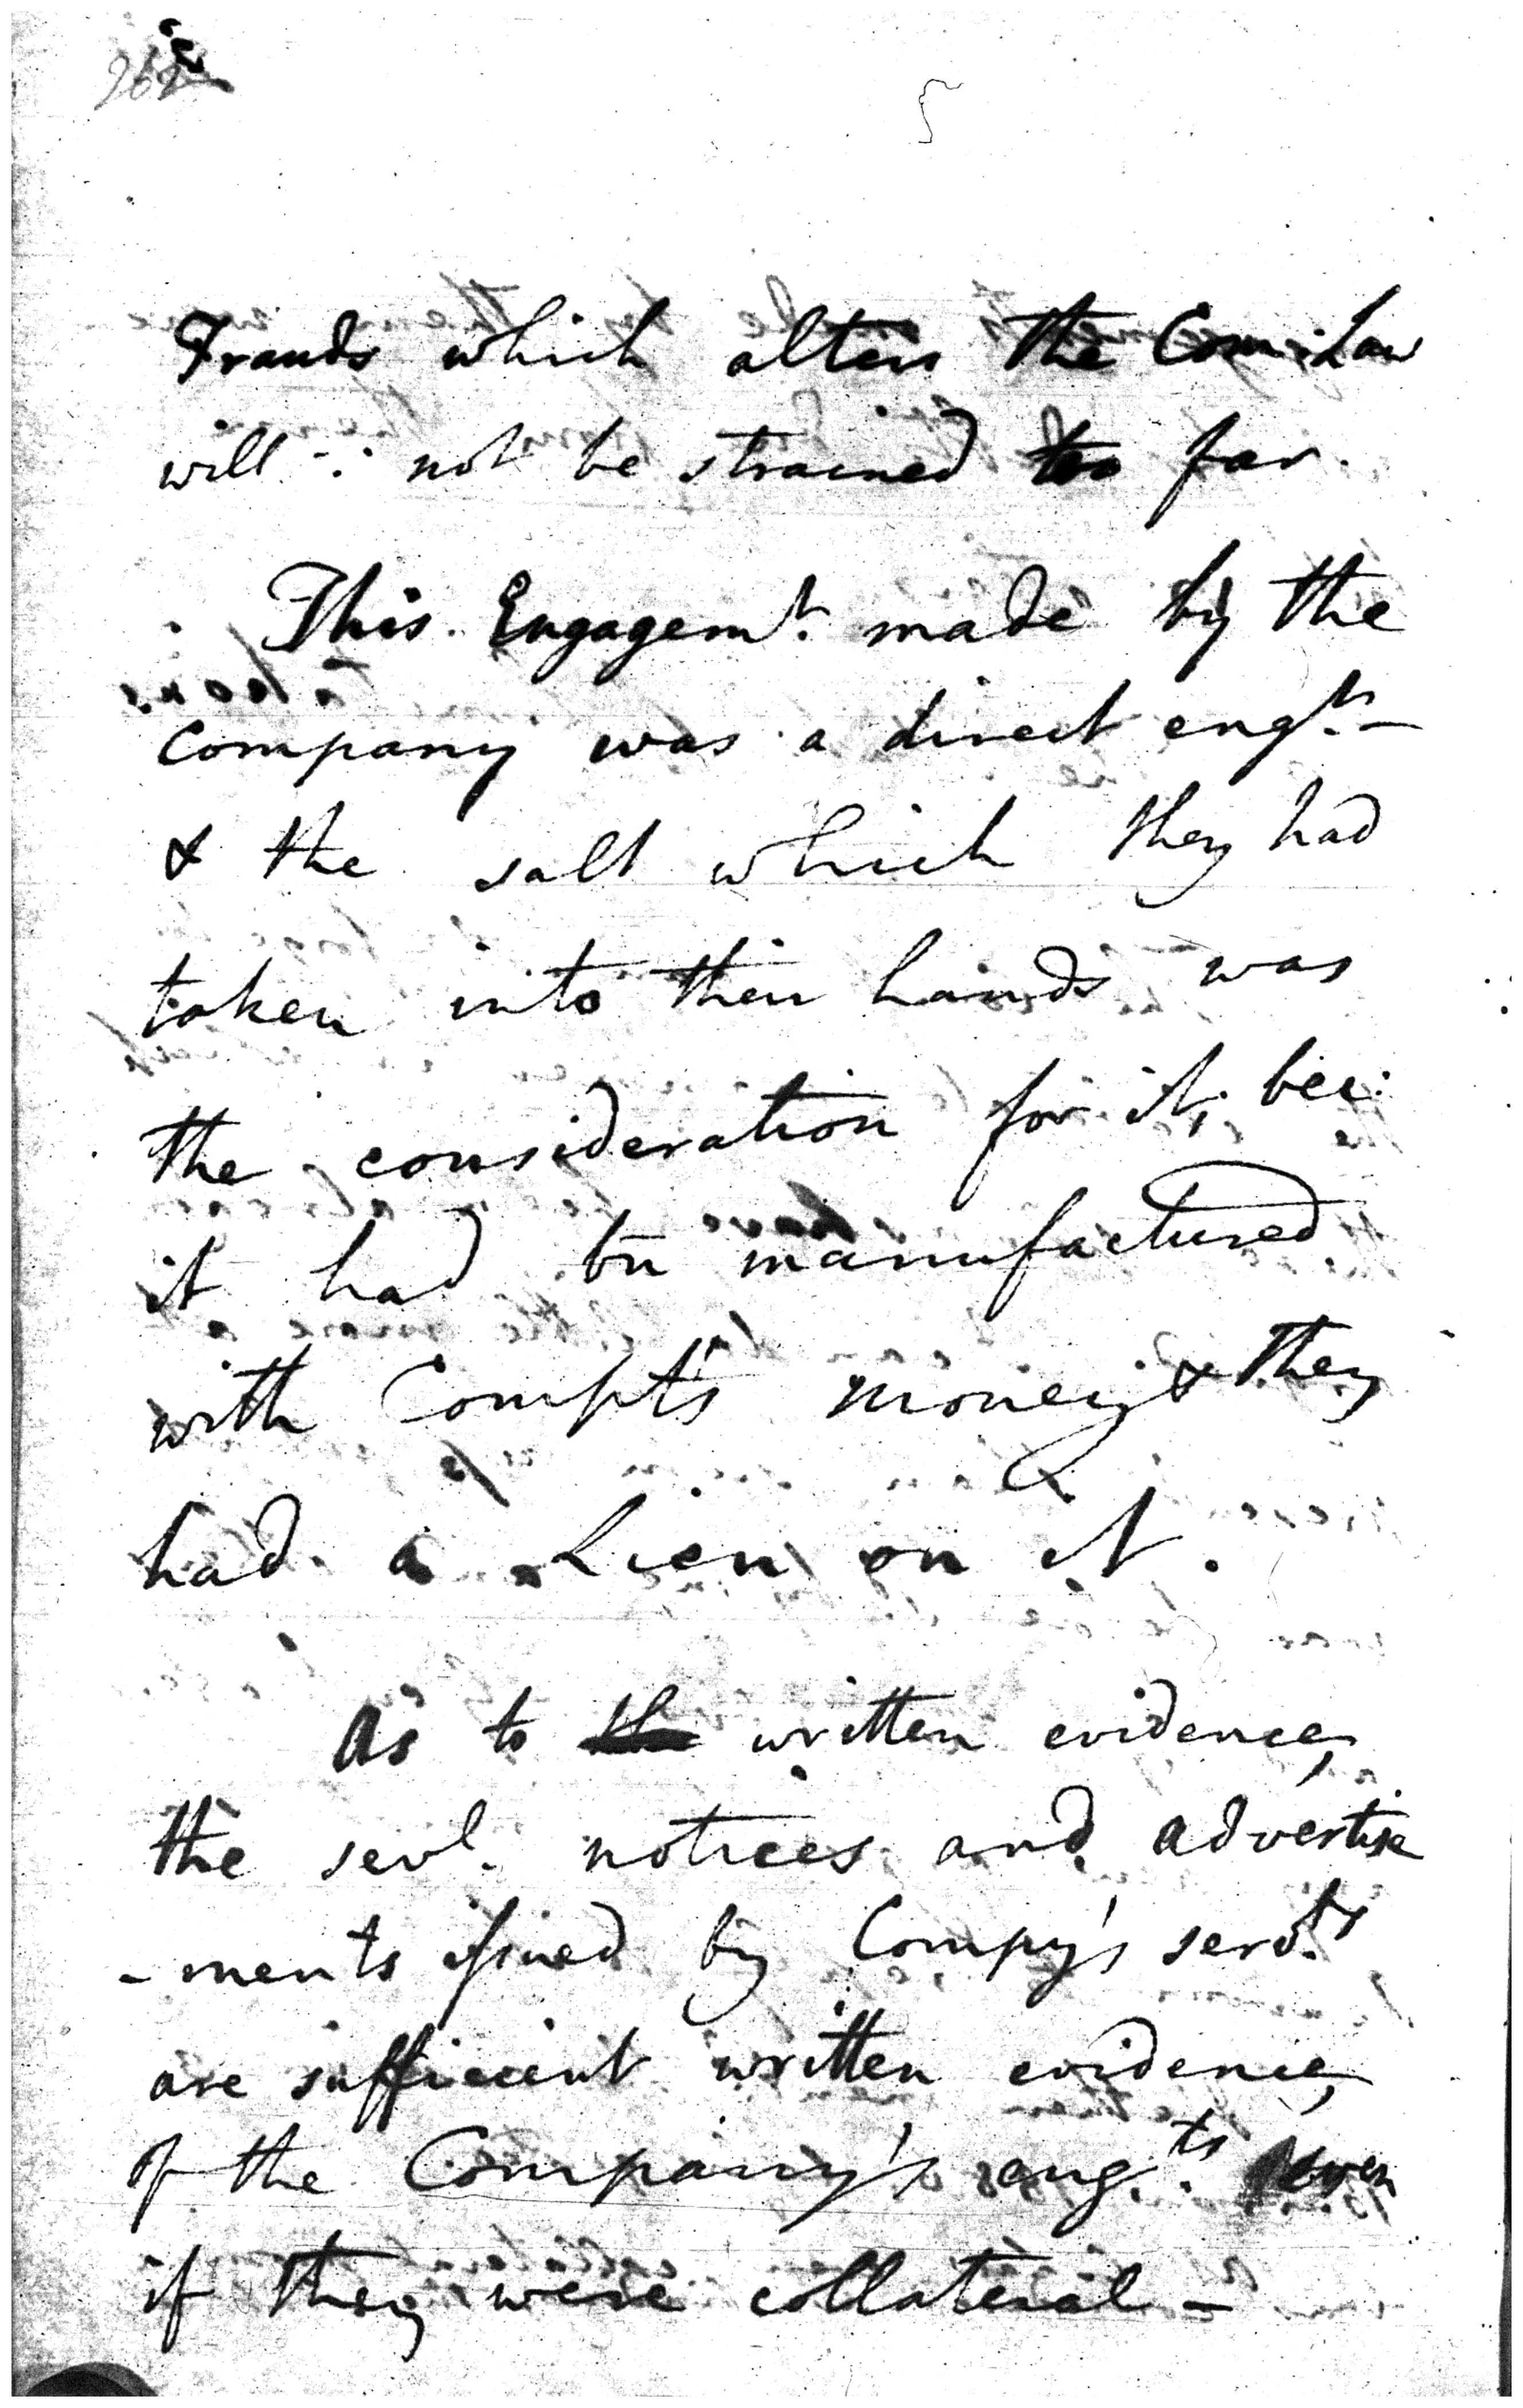 Frauds which alters the Com: Law
will ∴ not be strained too far.
This Engagemt. made by the
Company was a direct engt. –
& the salt which they had
taken into their hands was
the consideration for it, bec:
it had bn manufactured
with Compt's money & they
had a Lien on it.
As to the written evidence,
the sevl. notices and advertise
-ments issued by Compy's servts.
are sufficient written evidence,
of the Company's engts. even
if they were collateral –